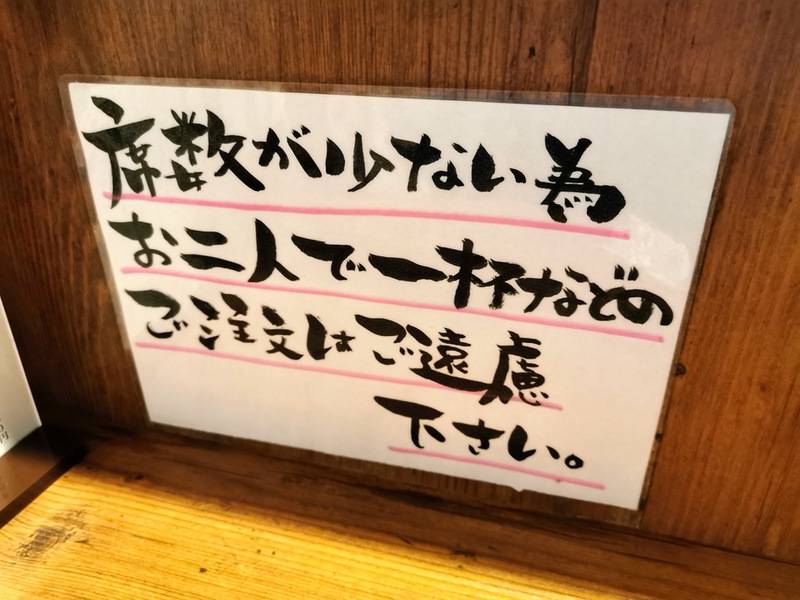 席数が少ない為
お二人で一杯などの
ご注文はご遠慮
下さい。
円